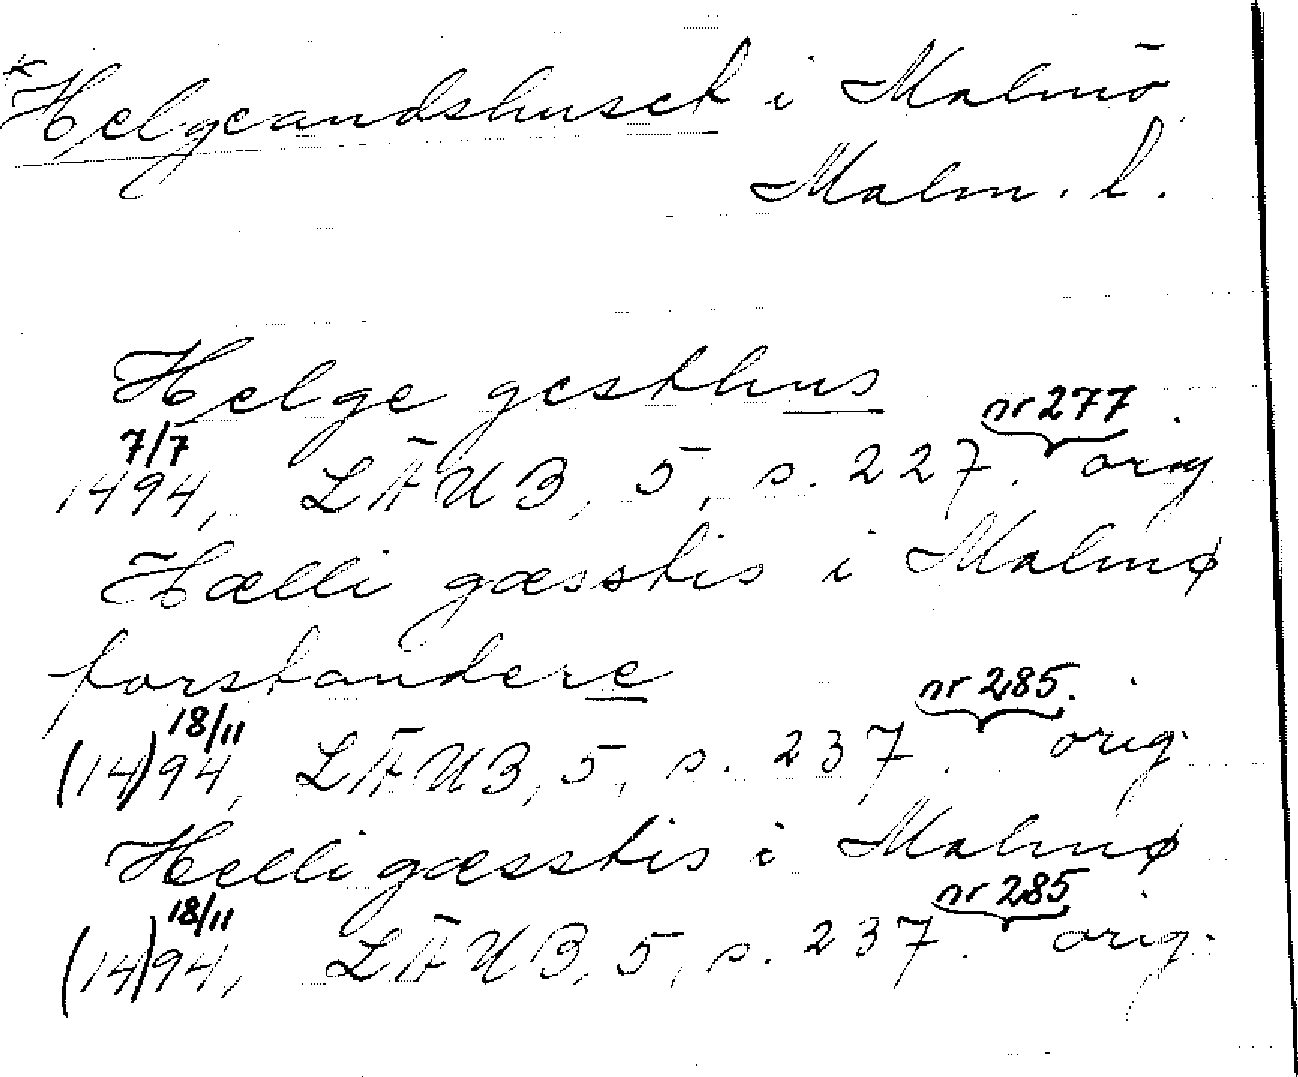 *Helgeandshuset i Malmö
Malm. l.
Helge gesthus
7/7 nr 277
1494, LÄUB, 5, s. 227. orig
Hælli gæsstis i Malmø
forstandere
18/11 nr 285.
(14)94, LÄUB, 5, s. 237. orig.
Helligæsstis i Malmø
18/11 nr 285
(14)94, LÄUB, 5, s. 237. orig.